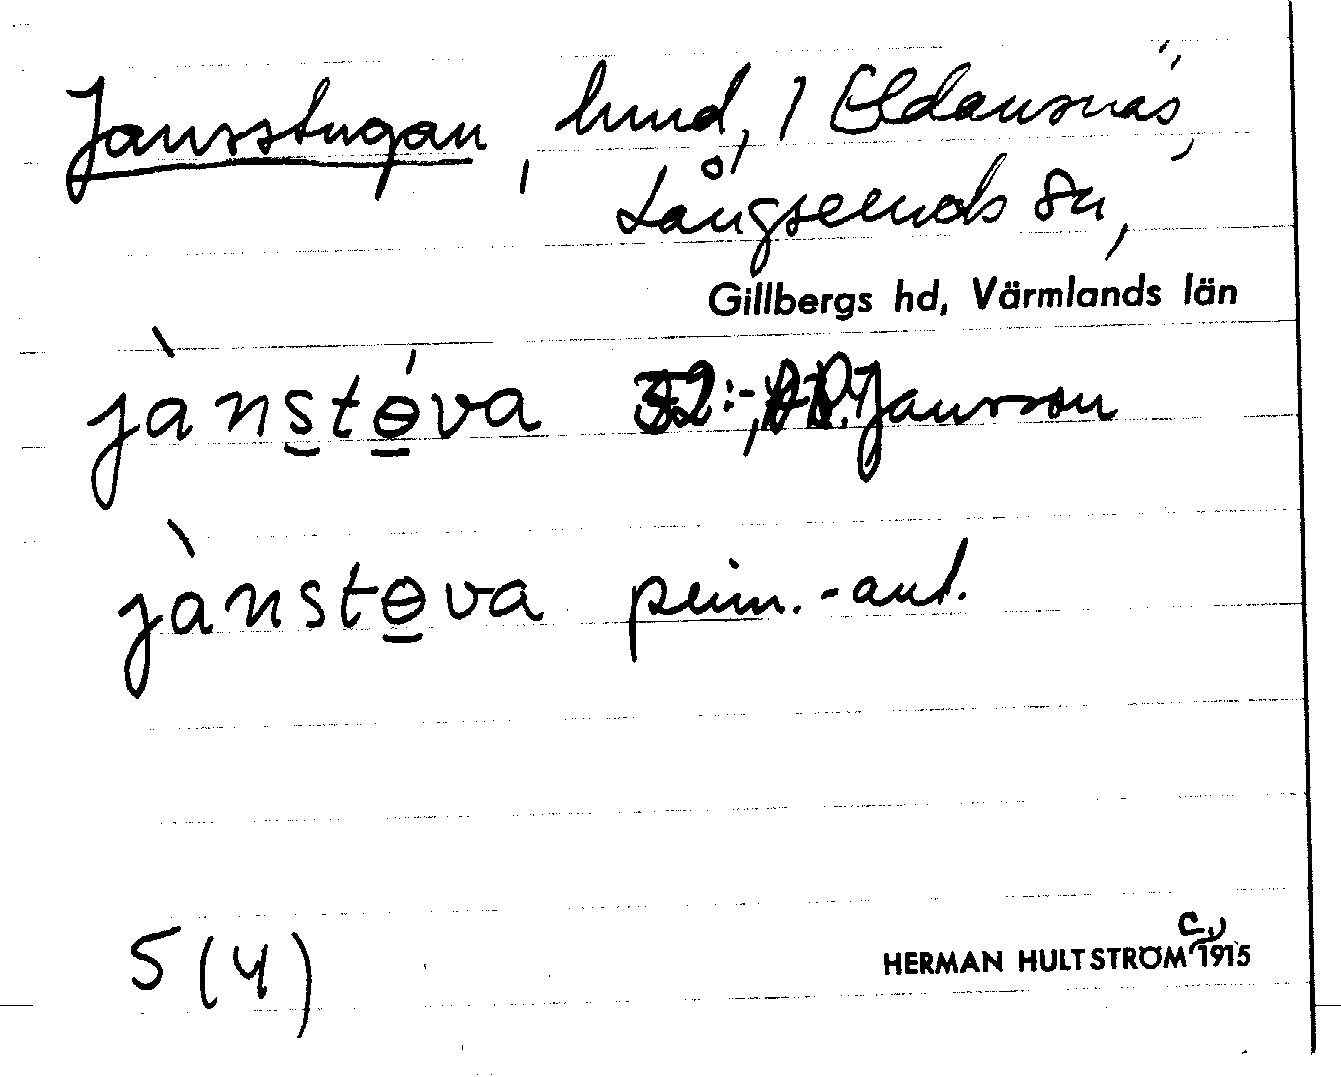 Jansstugan, hmd, 1 Eldansnäs,
Långseruds sn,
Gillbergs hd, Värmlands län
jànstɵ́va 32:-, A.P. Jansson
jànstɵva peim.-ant.
5 (4)
HERMAN HULTSTRÖM c. 1915